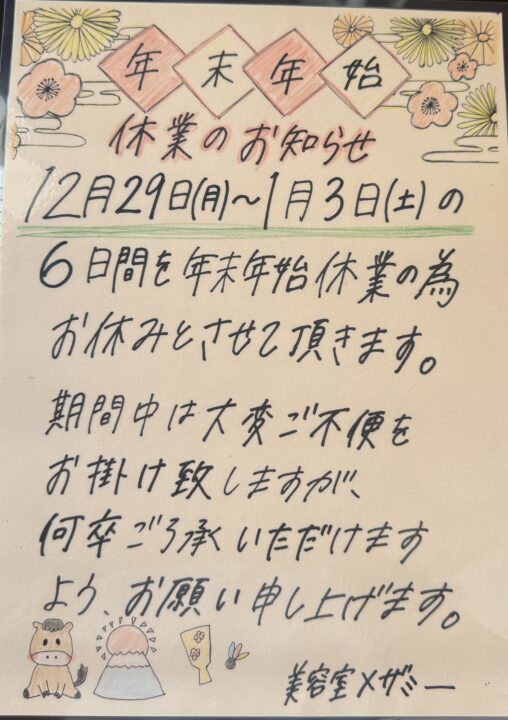 年末年始
休業のお知らせ
12月29日(月)~1月3日(土)の
6日間を年末年始休業の為
お休みとさせて頂きます。
期間中は大変ご不便を
お掛け致しますが、
何卒ご了承いただけます
よう、お願い申し上げます。
美容室メザミー